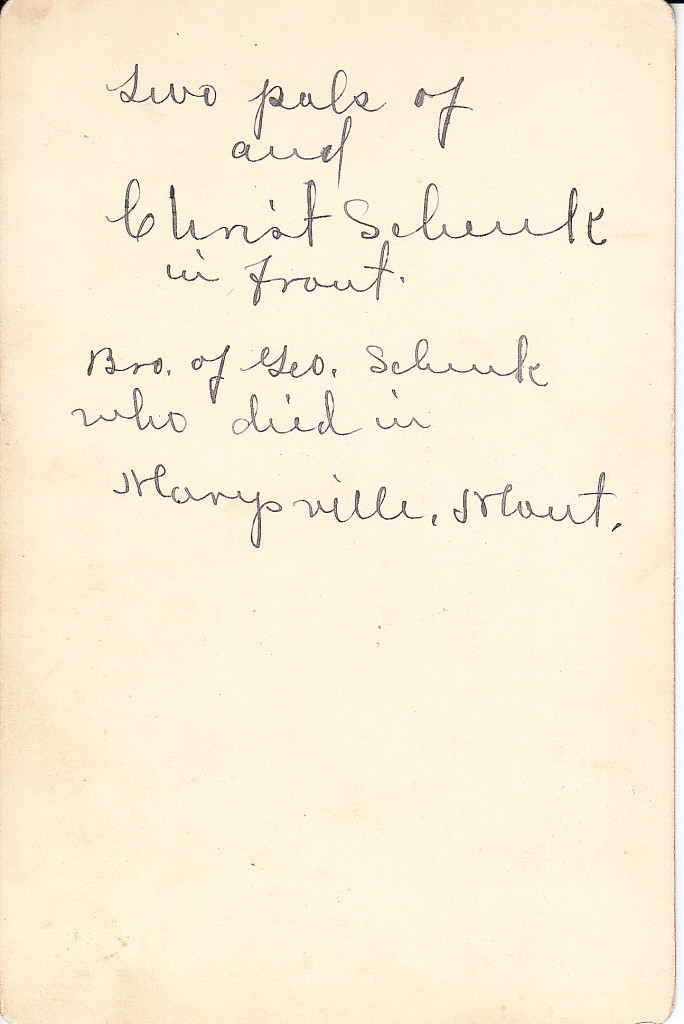 two pals of
and
Christ Schenk
in front.
Bro. of Geo. Schenk
who died in
Marysville, Mont.